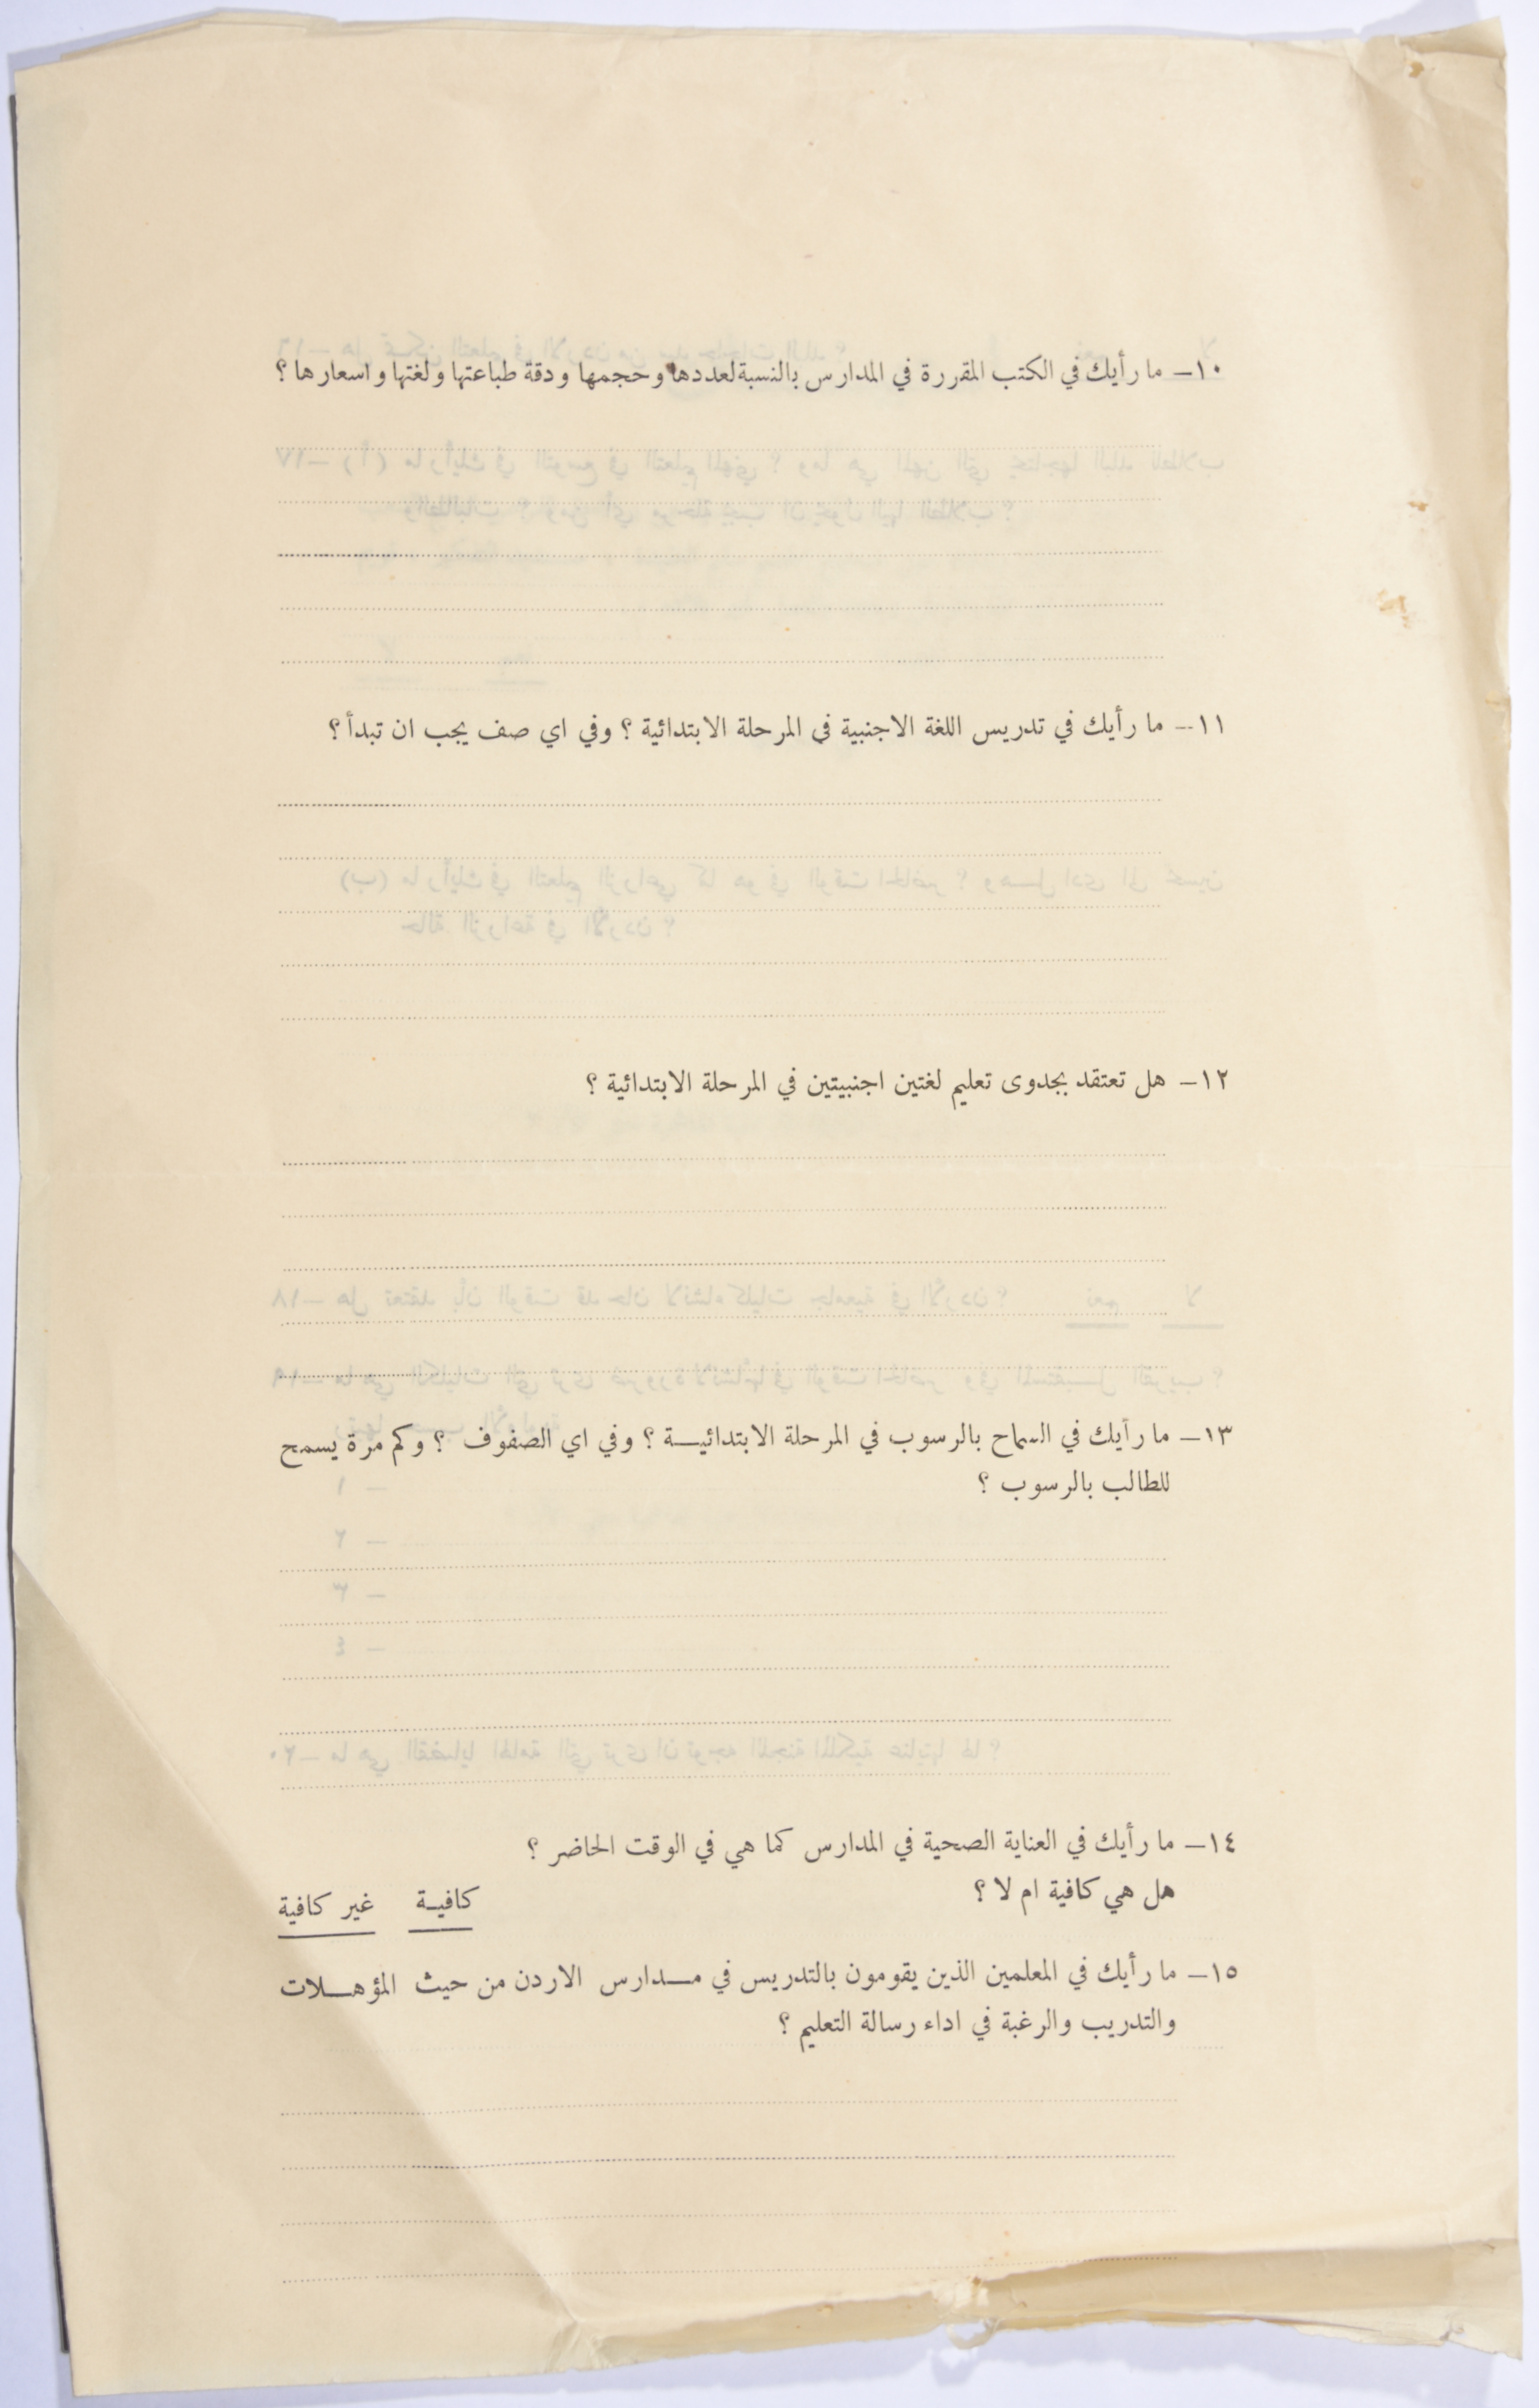 ١٠ــ ما رأيك في الكتب المقررة في المدارس بالنسبة لعددها وحجمها ودقة طباعتها ولغتها واسعارها ؟
١١ــ ما رأيك في تدريس اللغة الاجنبية في المرحلة الابتدائية ؟ وفي اي صف يجب ان تبدأ ؟
١٢ــ هل تعتقد بجدوى تعليم لغتين اجنبيتين في المرحلة الابتدائية ؟
١٣ــ ما رأيك في السماح بالرسوب في المرحلة الابتدائيــة ؟ وفي اي الصفوف ؟ وكم مرة يسمح
للطالب بالرسوب ؟
١٤ــ ما رأيك في العناية الصحية في المدارس كما هي في الوقت الحاضر ؟
هل هي كافية ام لا ؟ كافيـة غير كافية
١٥ــ ما رأيك في المعلمين الذين يقومون بالتدريس في مــدارس الاردن من حيث المؤهــلات
والتدريب والرغبة في اداء رسالة التعليم ؟